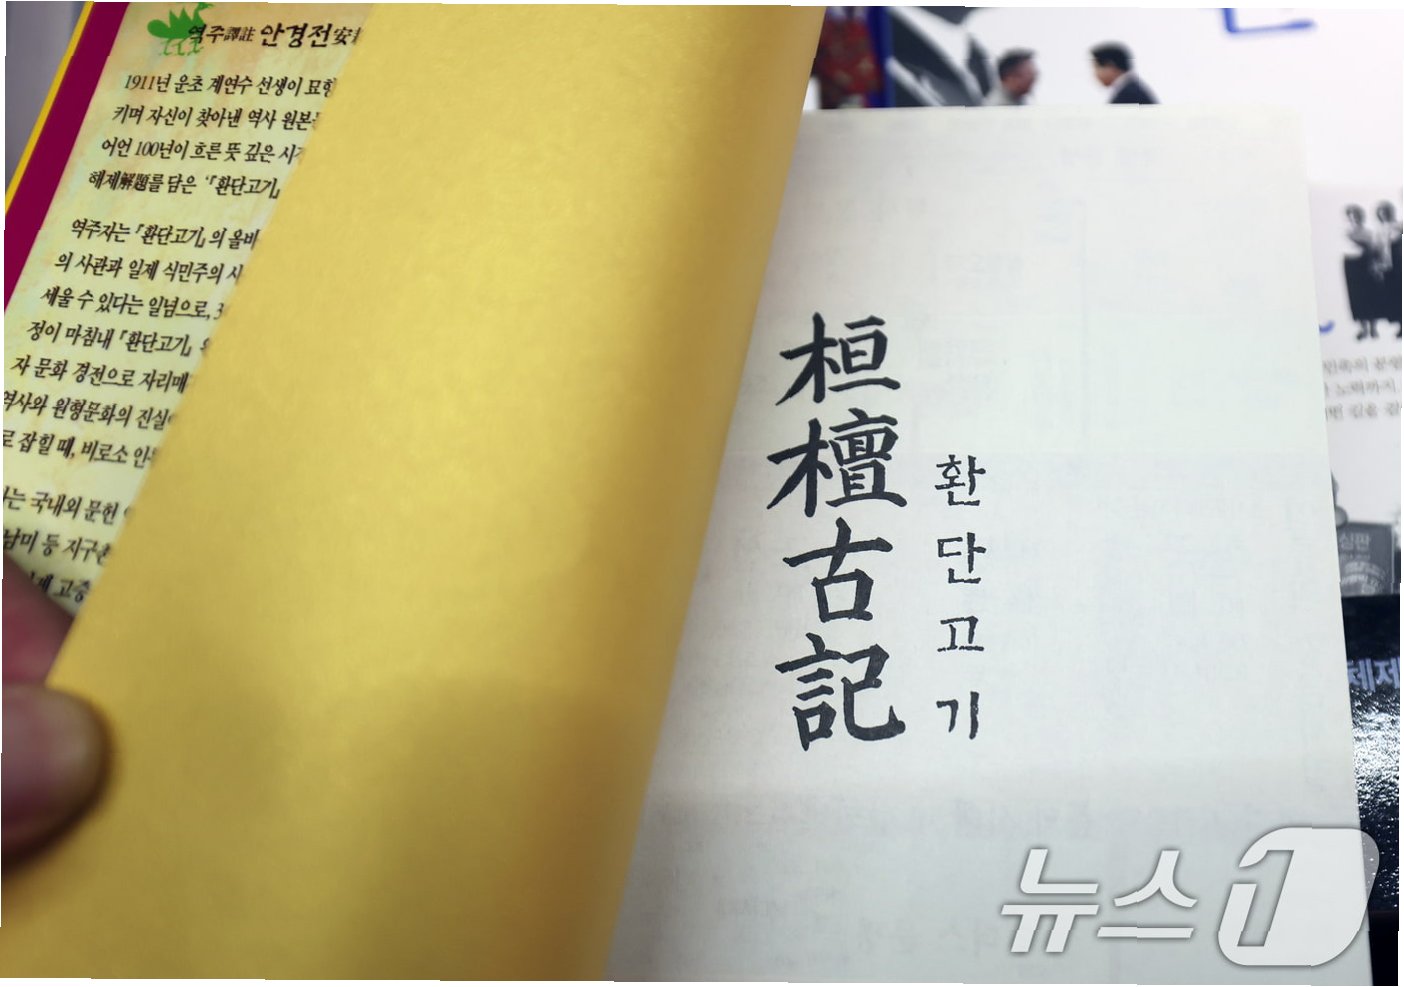 역주譯註 안경전安
1911년 운초 계연수 선생이 묘향
키며 자신이 찾아낸 역사 원본
어언 100년이 흐른 뜻 깊은 시
해제解題를 담은 『환단고기』
역주자는 『환단고기』의 올바
의 사관과 일제 식민주의 시
세울 수 있다는 일념으로, 3
정이 마침내 『환단고기』
자 문화 경전으로 자리매
역사와 원형문화의 진실
로 잡힐 때, 비로소 인
는 국내외 문헌
남미 등 지구촌
고증
桓檀古記
환단고기
심판
체제
뉴스1